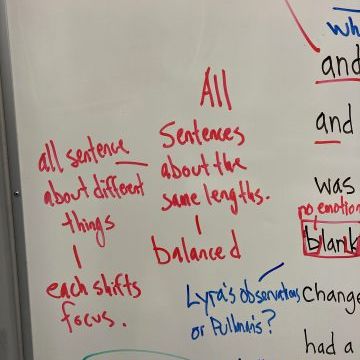 all sentence
about different
things
each shifts
focus.
All
Sentences
about the
same lengths.
balanced
Lyra's observations
or Pullman's?
wh
and
and
was
no emotion
blank
change
had a